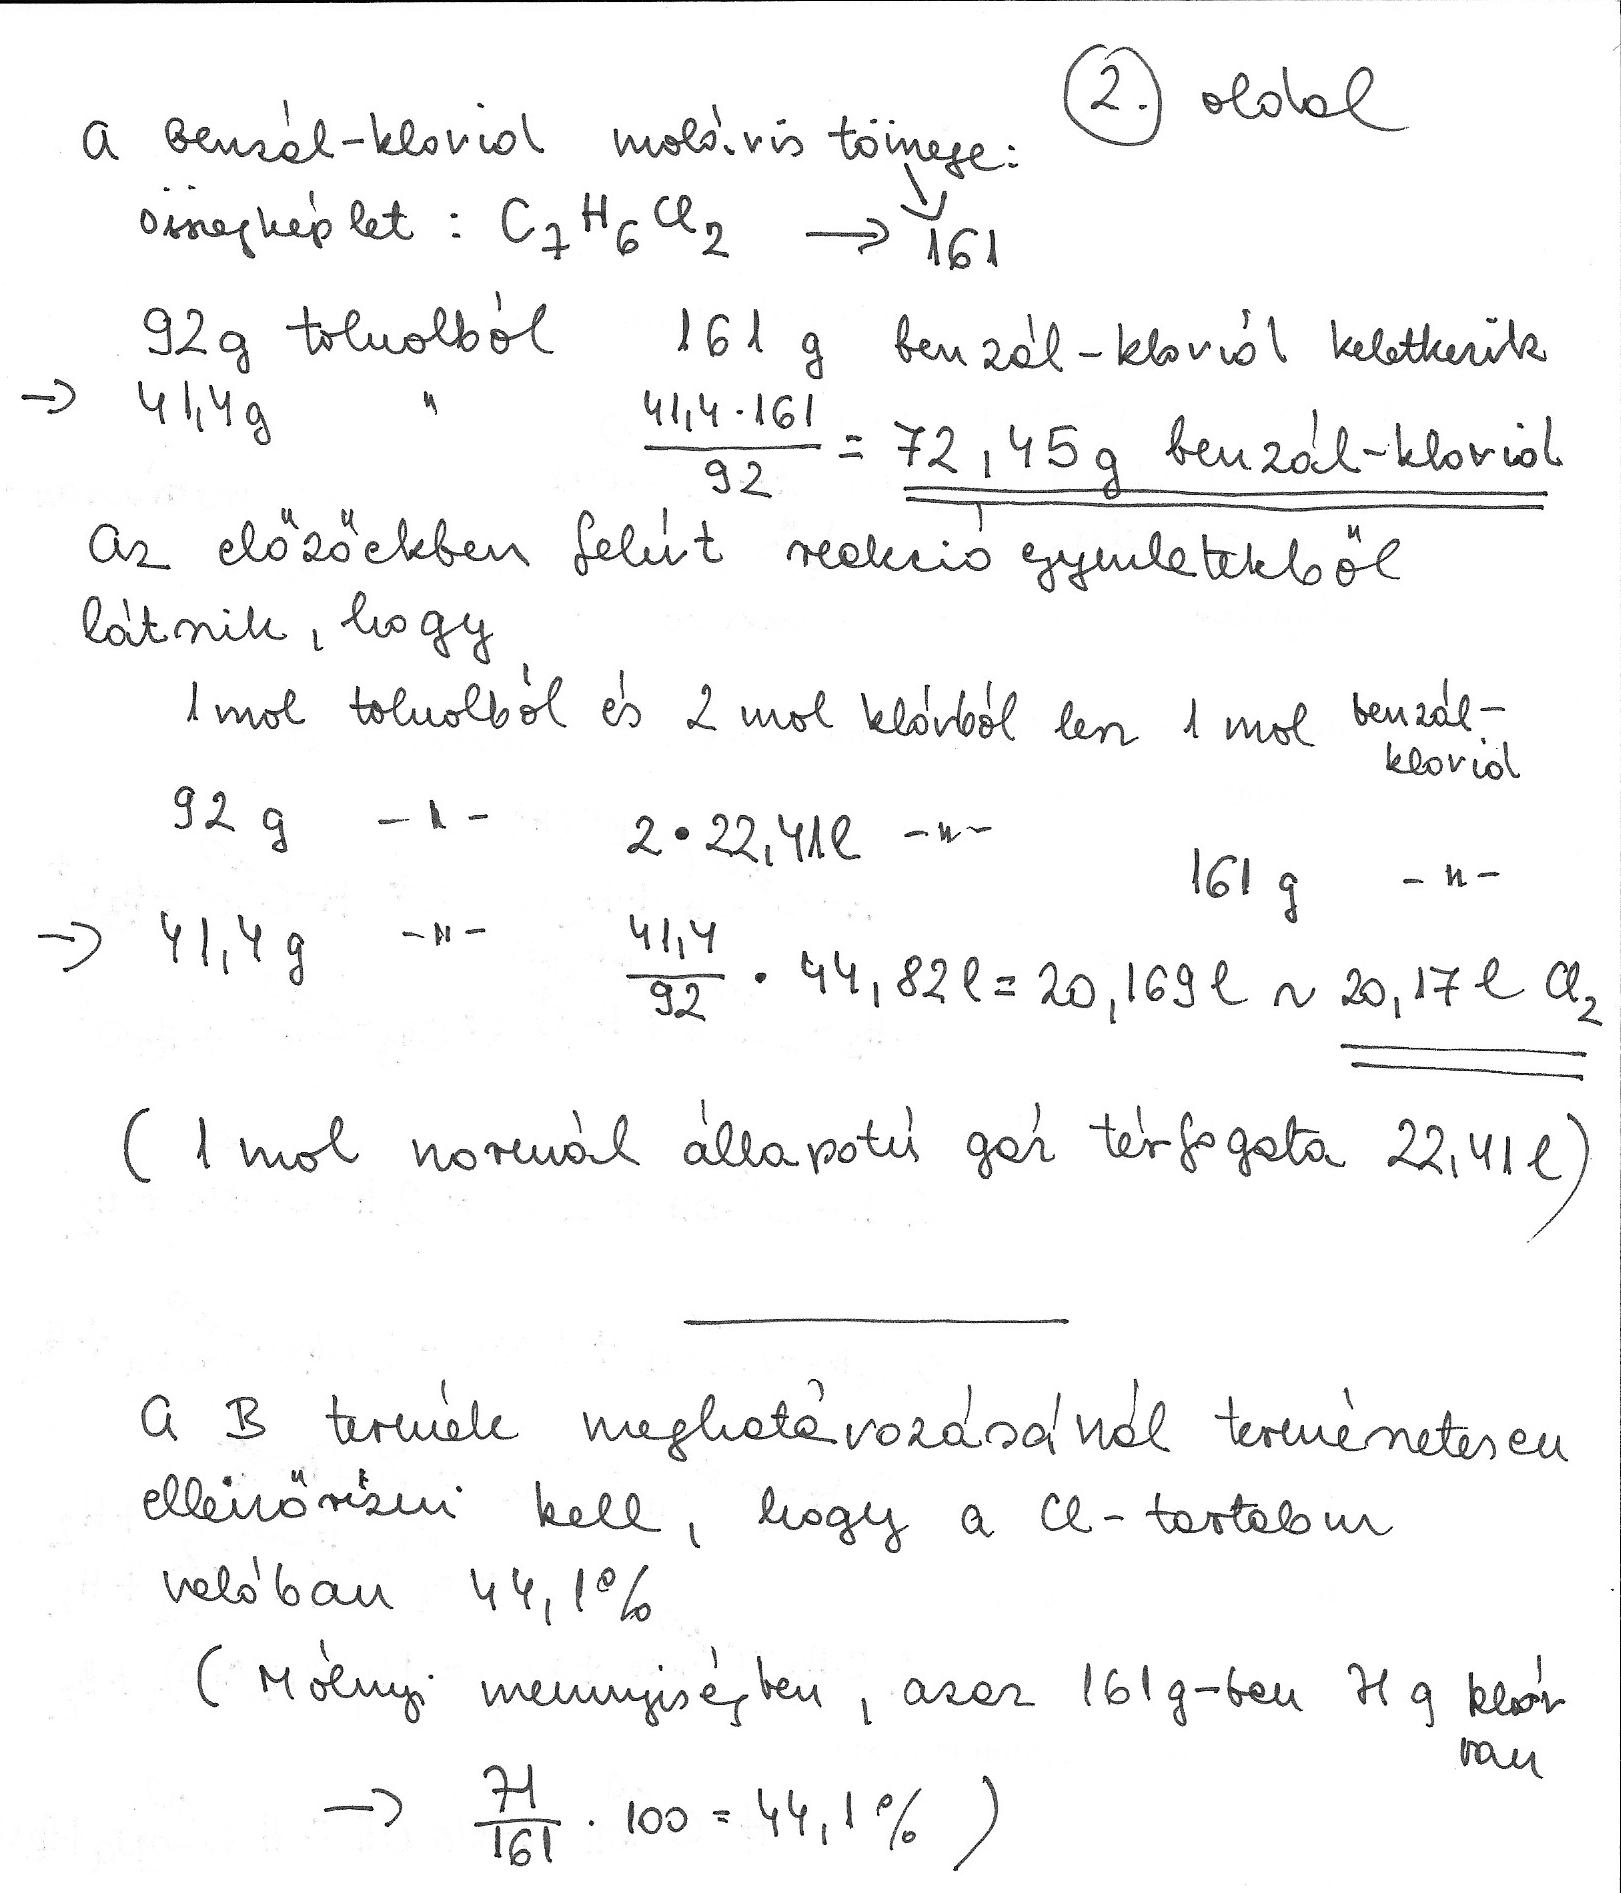 2. oldal
A benzál-klorid moláris tömege:
összegképlet: C₇H₆Cl₂ → 161
92g toluolból 161 g benzál-klorid keletkezik
→ 41,4g " 41,4·161/92 = 72,45g benzál-klorid
Az előzőekben felírt reakcióegyenletekből
látszik, hogy
1 mol toluolból és 2 mol klórból lesz 1 mol benzál-
klorid
92 g -"- 2·22,41l -"-
161 g -"-
→ 41,4g -"- 41,4/92 · 44,82l = 20,169l ~ 20,17l Cl₂
(1 mol normál állapotú gáz térfogata 22,41l)
A B termék meghatározásánál természetesen
ellenőrizni kell, hogy a Cl-tartalom
valóban 44,1%
(Mólnyi mennyiségben, azaz 161g-ban 71g klór
van
→ 71/161 · 100 = 44,1%)